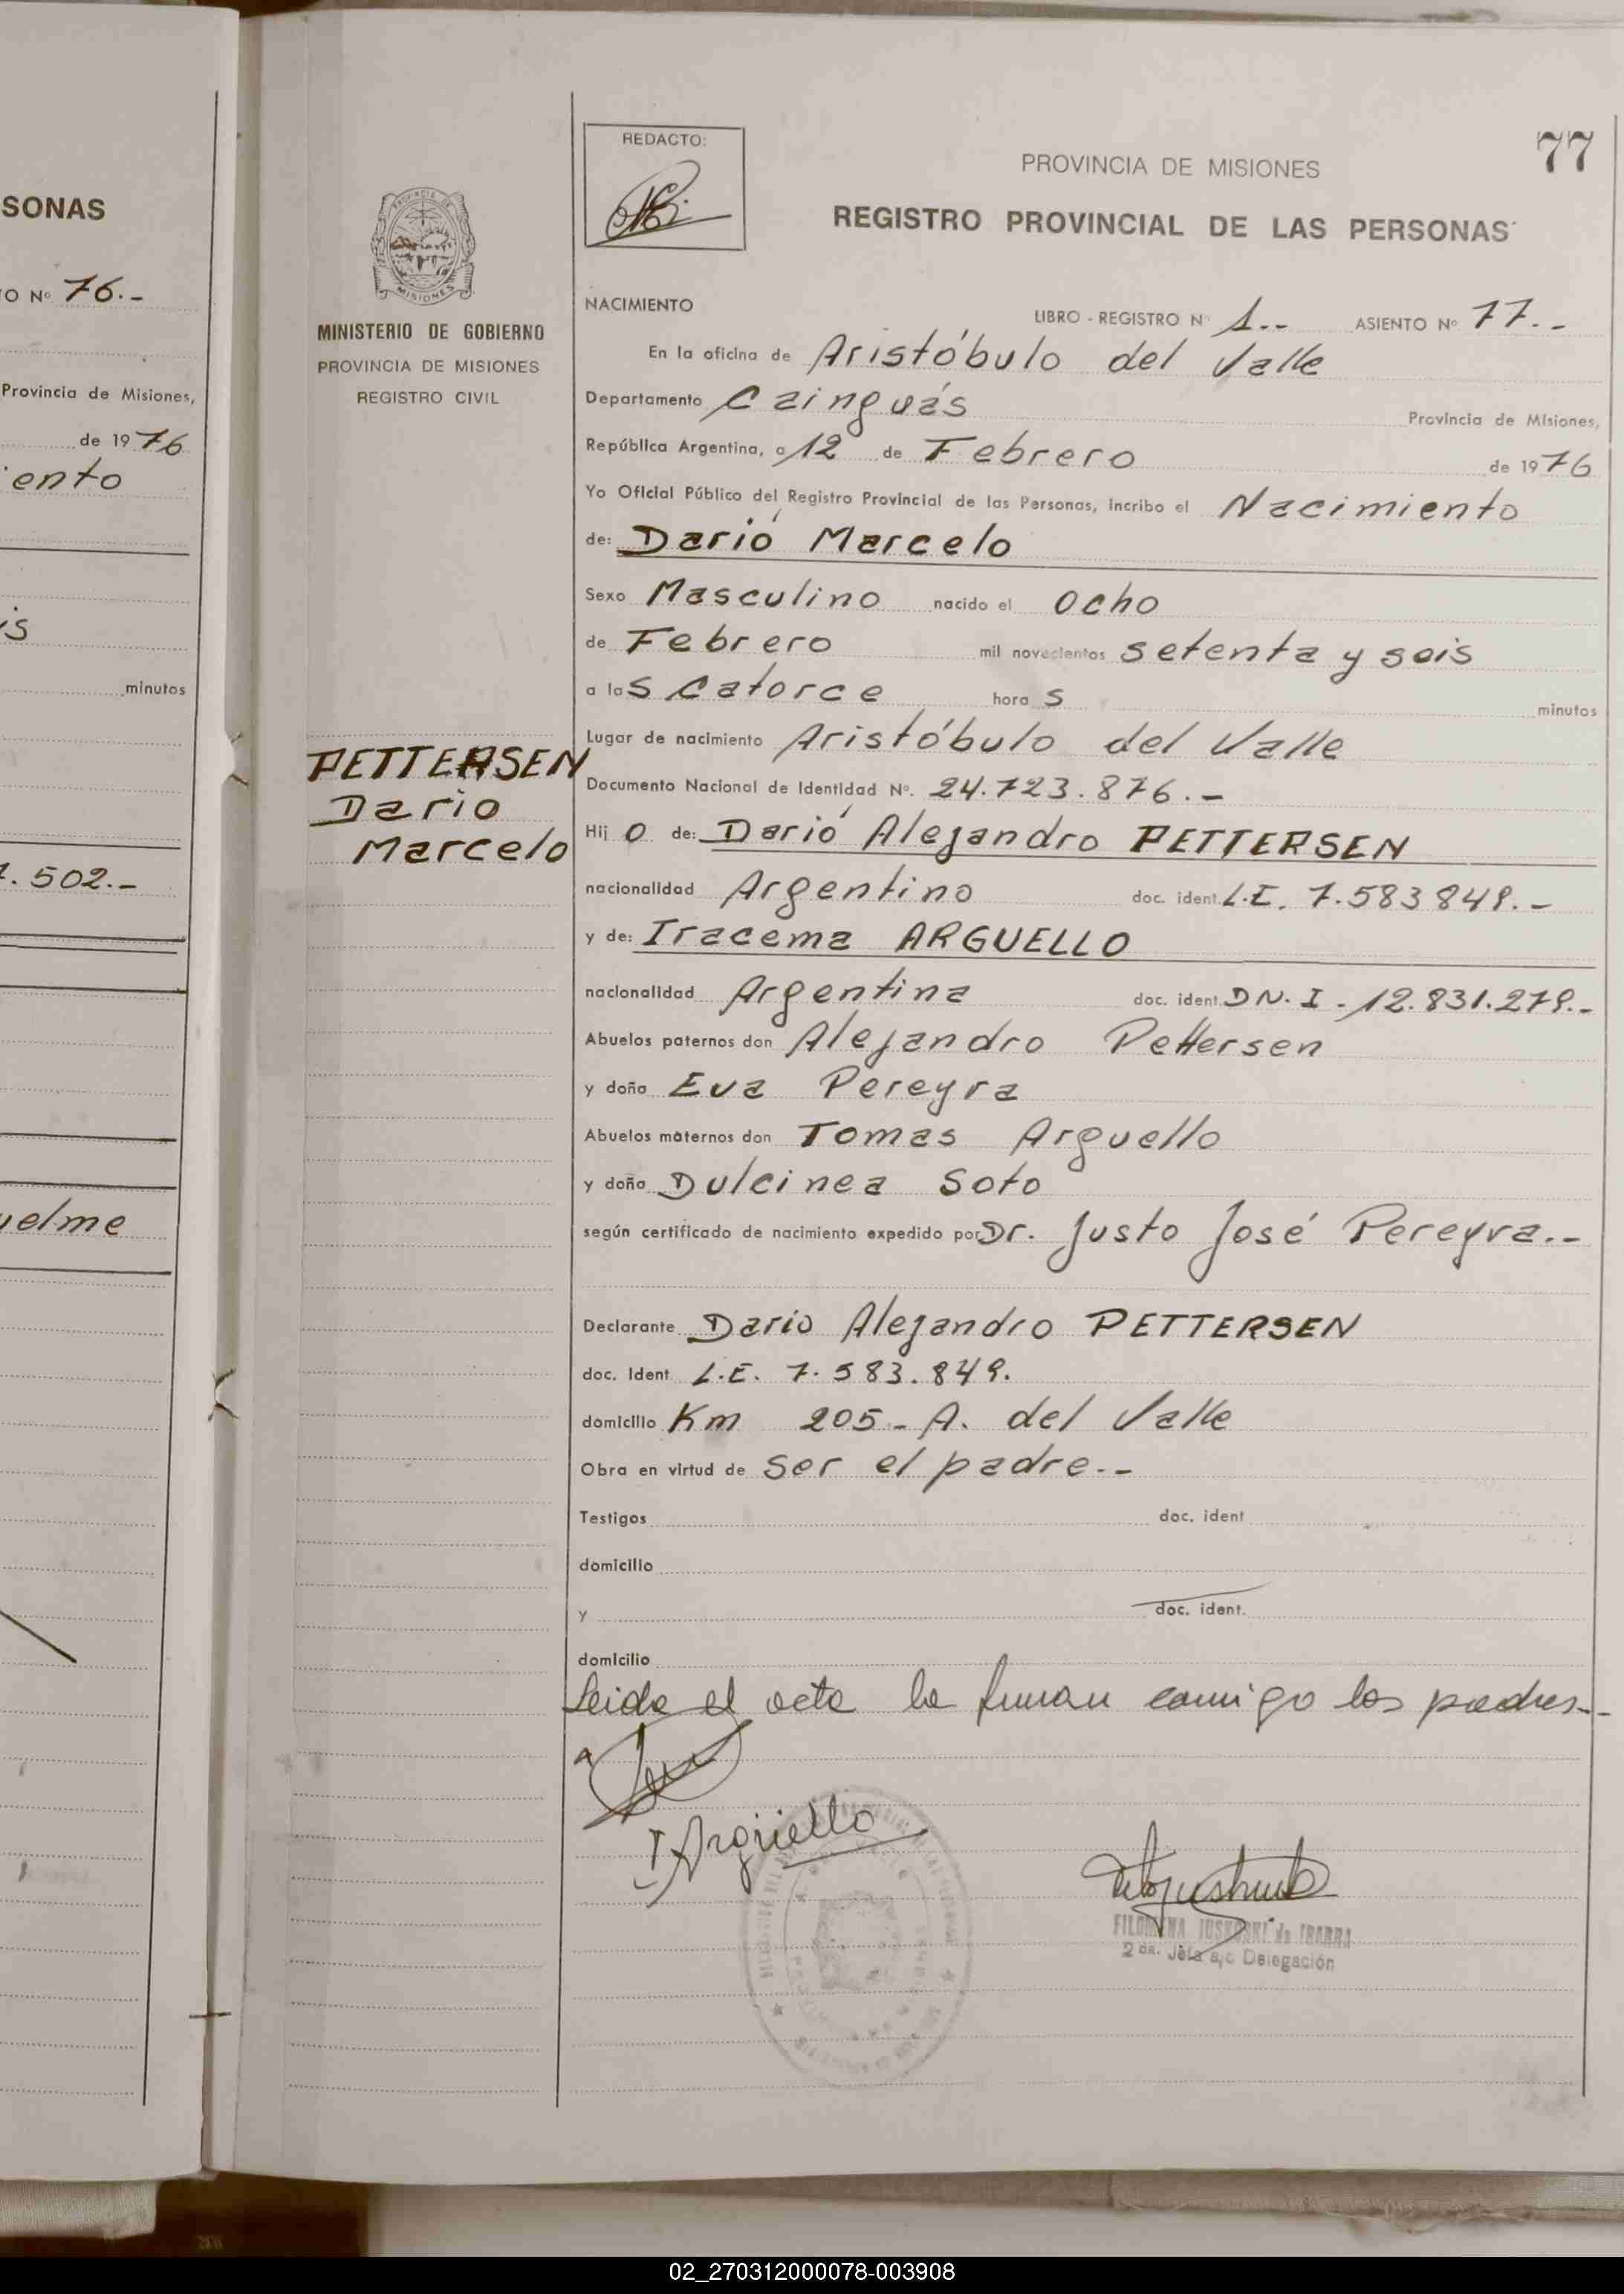 SONAS
O Nº 76.-
Provincia de Misiones,
de 1976
ento
is
minutos
. 502.-
elme
REDACTO:
77
PROVINCIA DE MISIONES
REGISTRO PROVINCIAL DE LAS PERSONAS
MISIONES
MINISTERIO DE GOBIERNO
PROVINCIA DE MISIONES
REGISTRO CIVIL
PETTERSEN
Dario
Marcelo
NACIMIENTO LIBRO - REGISTRO Nº 1.- ASIENTO Nº 77.-
En la oficina de Aristóbulo del Valle
Departamento Cainguás Provincia de Misiones,
República Argentina, a 12 de Febrero de 1976
Yo Oficial Público del Registro Provincial de las Personas, incribo el Nacimiento
de: Darío Marcelo
Sexo Masculino nacido el ocho
de Febrero mil novecientos setenta y seis
a las catorce horas minutos
Lugar de nacimiento Aristóbulo del Valle
Documento Nacional de Identidad Nº. 24.723.876.-
Hijo de: Darío Alejandro PETTERSEN
nacionalidad Argentino doc. ident. L.E. 7.583849.-
y de: Iracema ARGUELLO
nacionalidad Argentina doc. ident. DN.I-12.831.279.-
Abuelos paternos don Alejandro Pettersen
y doña Eva Pereyra
Abuelos maternos don Tomas Arguello
y doña Dulcinea Soto
según certificado de nacimiento expedido por Dr. Justo José Pereyra.-
Declarante Dario Alejandro PETTERSEN
doc. Ident. L.E. 7.583.849.
domicilio Km 205- A. del Valle
Obra en virtud de ser el padre.-
Testigos doc. ident
domicilio
y doc. ident.
domicilio
Leida el acta la firman conmigo los padres.-
I Argüello
FILOMENA JUSKOSKI de IBARRA
2da. Jefa a/c Delegación
02_270312000078-003908